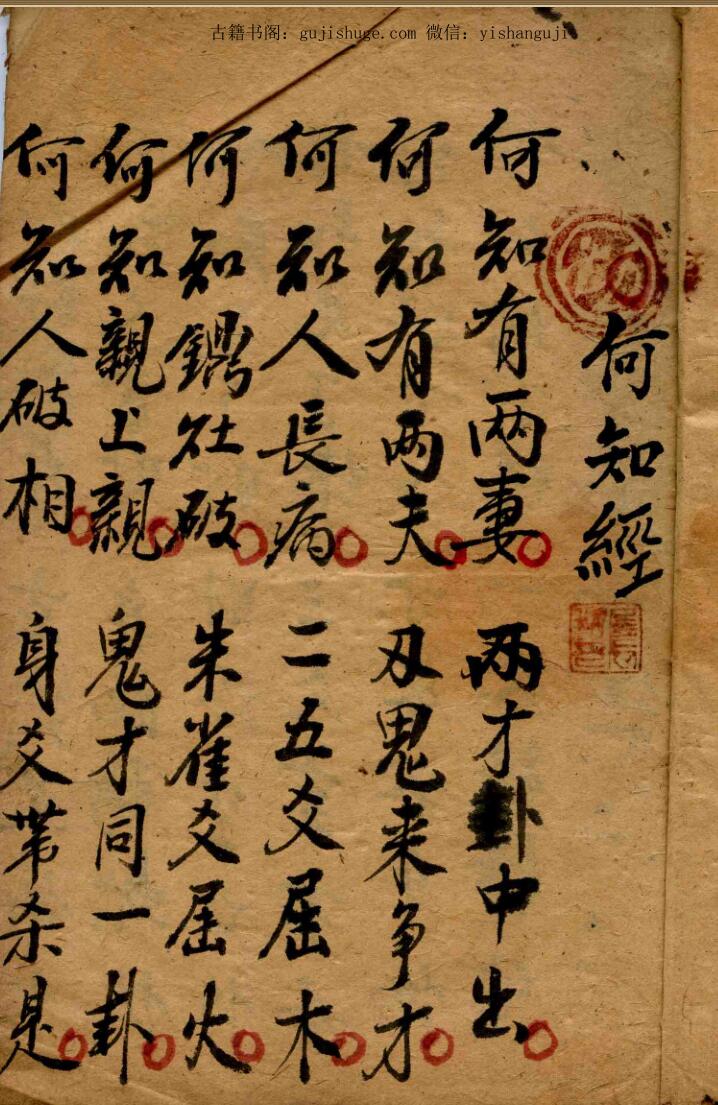 古籍书阁：gujishuge.com 微信：yishanguji
何知經
何知有两妻 两才卦中出
何知有两夫 刄鬼来争才
何知人長病 二五爻屈木
何知鍋灶破 朱雀爻屈火
何知親上親 鬼才同一卦
何知人破相 身爻带杀是